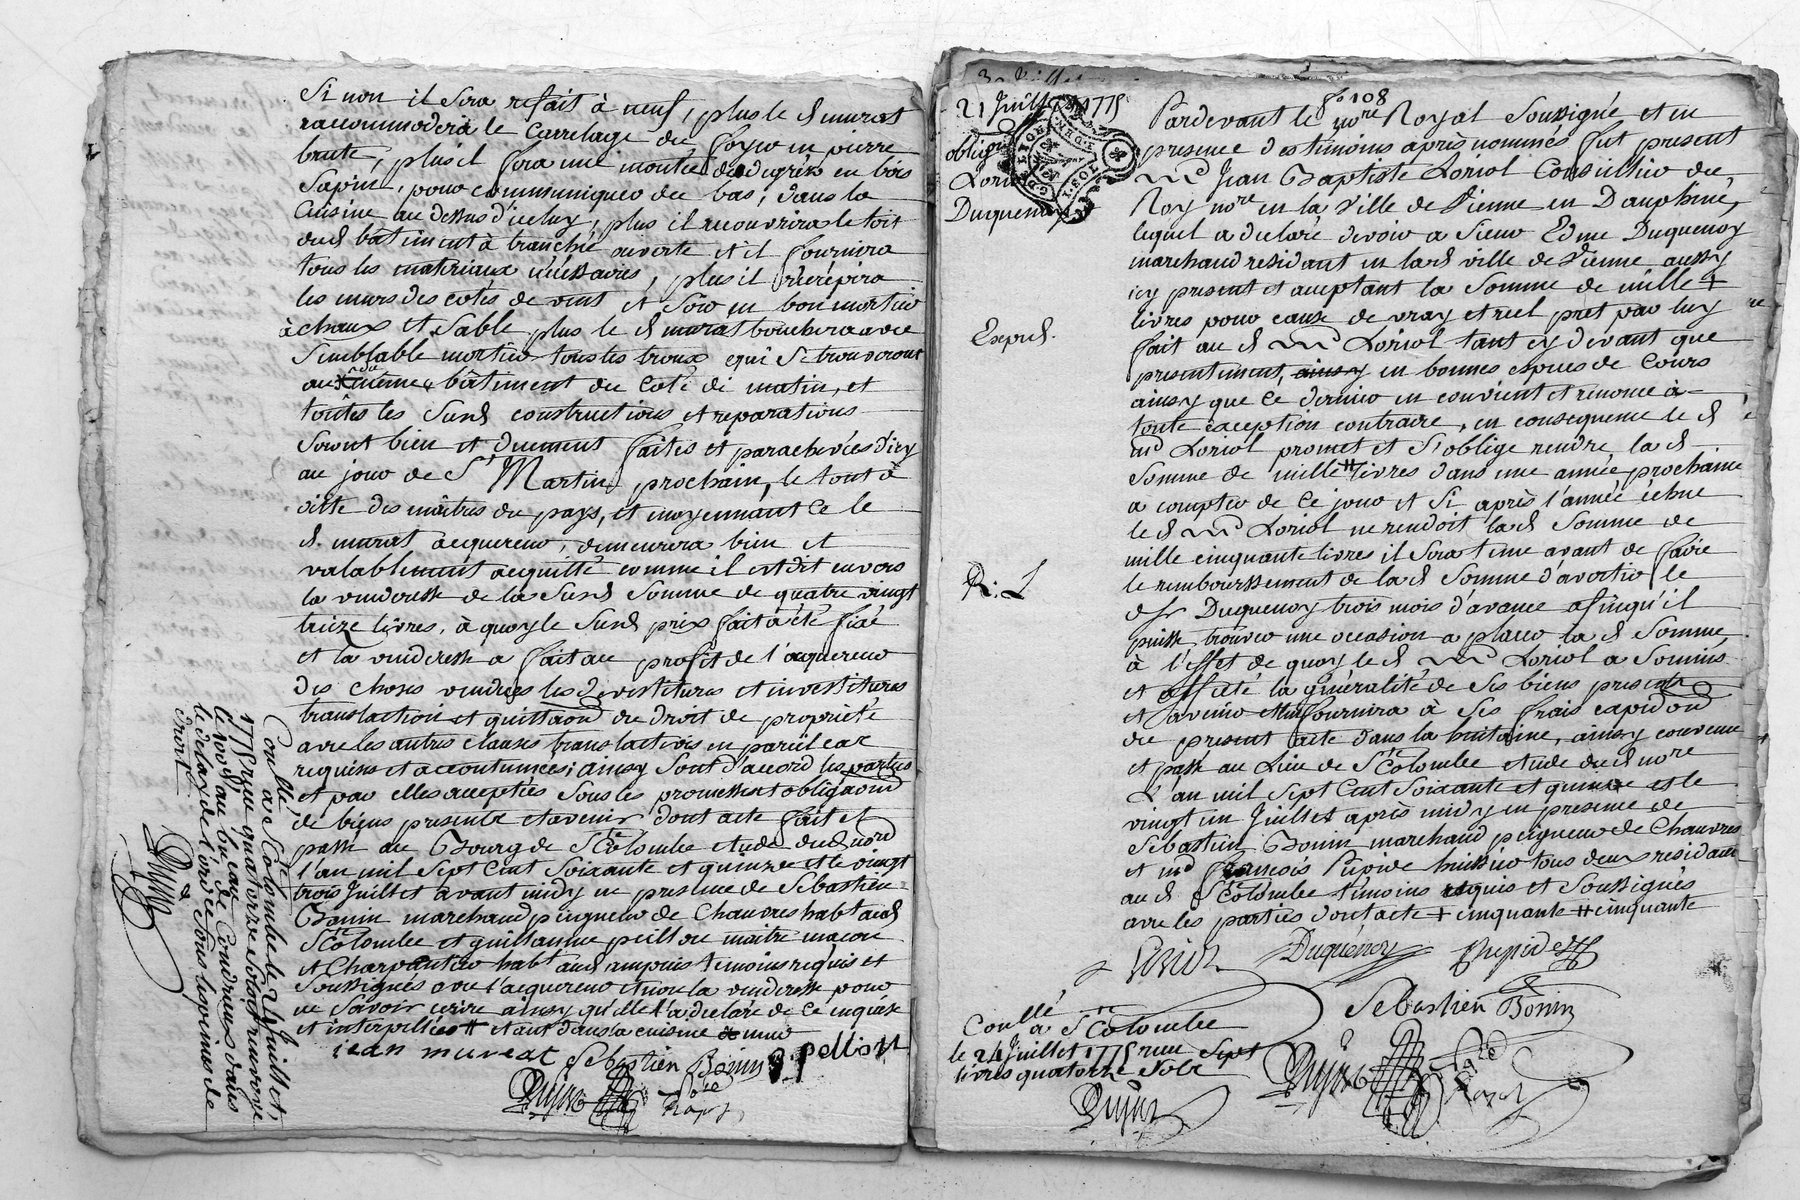 Si non il Sera refait à neuf, plus le d. murat
raccommodera le Carrelage du foyer en pierre
brute, plus il fera une montée de degrés en bois
Sapin, pour communiquer du bas, dans la
Cuisine au dessus d'iceluy, plus il recouvrira le toit
dud. bâtiment à tranchée ouverte et il fournira
tous les materiaux nécéssaires, plus il récrépira
les murs des cotés de vent et Soir en bon mortier
à chaux et Sable, plus le d. murat bouchera avec
Semblable mortier tous les trous qui Se trouveront
au même bâtiment du Coté de matin, et
toutes les Susd. constructions et reparations
Seront bien et duement faites et parachevées d'icy
au jour de St. Martin prochain, le tout à
ditte des maîtres du pays, et moyennant Ce le
d. murat acquereur, demeurera bien et
valablement acquitté comme il est dit envers
la venderesse de la Susd. Somme de quatre vingt
treize livres, à quoy le Susd. prix fait a été fixé
et la venderesse a fait au profit de l'acquereur
des choses vendues les devestitures et investitures
translaction et quittaon du droit de proprieté
avec les autres clauses translatives en pareil cas
requises et accoutumées; ainsy Sont d'accord les parties
et par elles acceptés Sous les promesses et obligaons
de biens presents et avenir dont acte fait et
passé au Bourg de Ste Colombe etude dud. nore
l'an mil Sept Cent Soixante et quinze et le vingt
trois Juillet avant midy en presence de Sébastien
Bonin marchand peigneur de Chanvres habt aud.
Ste Colombe et guillaume peillon maitre maçon
et Charpentier habt aud. ampuis témoins requis et
Soussignés avec l'acquereur et non la venderesse pour
ne Savoir ecrire ainsy qu'elle l'a declaré de ce enquise
et interpellée # etant dans la cuisine
jean mureat Sebastien Bonin g. pellion
Dujas nore Royal
Conllé
a Ste Colombe le 24 Juillet
1775 reçu quatorze Sols
le Sol au Bureau de Condrieux dans
le delay de l'ord. Sous les peines de
droit
Dujas
fo 108
21 Juillet 1775
obligon
Loriol
Duquenoy
Expéd.
R. L
Pardevant le nore Royal Soussigné, et en
presence des témoins après nommés fut present
Me Jean Baptiste Loriol Conseiller du
Roy nore en la Ville de Vienne en Dauphiné,
lequel a declaré devoir a Sieur Edme Duquenoy
marchand residant en lad. ville de Vienne aussy
icy present et acceptant la Somme de mille +
livres pour cause de vray et reel pret par luy
fait au d. Me Loriol tant cy devant que
presentement, ainsy en bonnes especes de Cours
ainsy que Ce dernier en convient et renonce à
toute exception contraire, en consequence le d.
Me Loriol promet et S'oblige rendre la d.
Somme de mille # livres dans une année prochaine
a compter de Ce jour et Si après l'année échue
le d. Me Loriol ne rendoit la d. Somme de
mille cinquante livres il Sera tenu avant de faire
le remboursement de la d. Somme d'avertir le
d. Sr Duquenoy trois mois d'avance afin qu'il
puisse trouver une occasion a placer la d. Somme,
à l'effet de quoy le d. Me Loriol a Soumis
et affecté la généralité de Ses biens presents
et avenir et luy fournira à Ses frais expidon
du present acte dans la huitaine, ainsy convenu
et passé au Lieu de Ste Colombe etude du d. nore
L'an mil Sept Cent Soixante et quinze et le
vingt un Juillet après midy en presence de
Sébastien Bonin marchand peigneur de Chanvres
et me françois Pupide huissier tous deux residants
au d. Ste Colombe témoins requis et Soussignés
avec les parties dont acte + cinquante # cinquante
Loriol Duquénoy Pupide
Sebastien Bonin
Conllé
a Ste Colombe
le 24 Juillet 1775 reçu Sept
livres quatorze Sols
Dujas
Dujas nore Royal